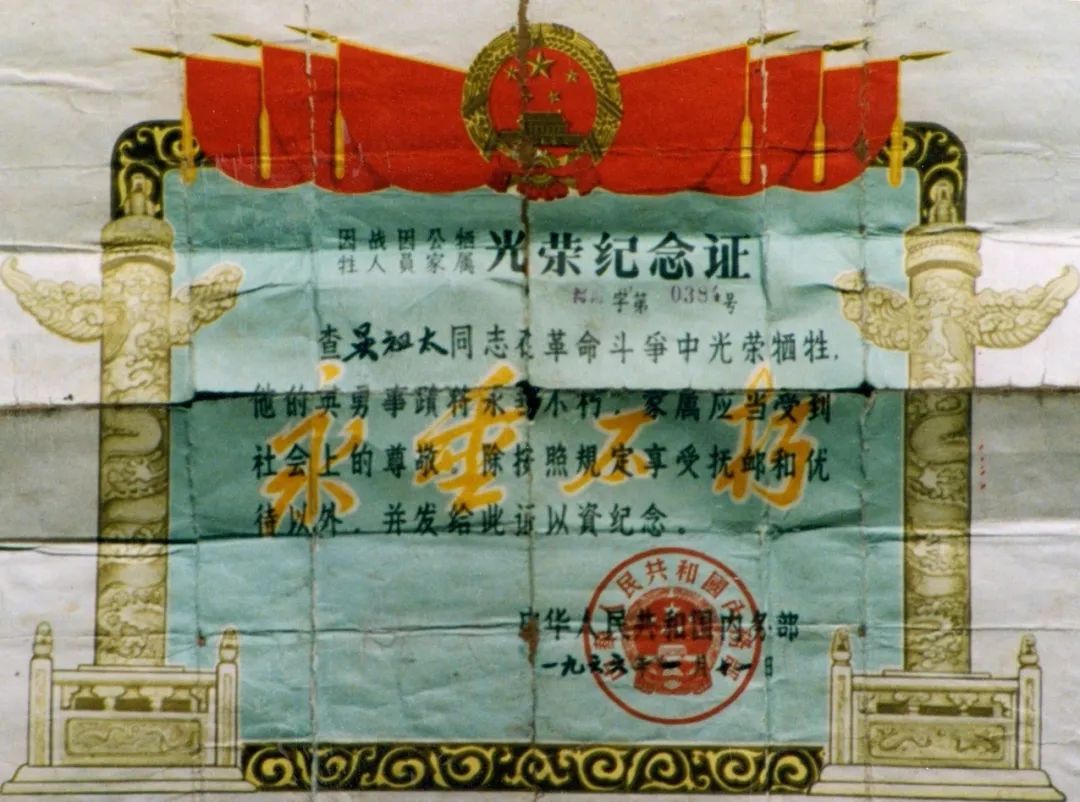 因战因公牺
牲人員家属 光荣纪念证
字第 038 号
查吴祖太同志在革命斗爭中光荣牺牲,
他的英勇事蹟将永垂不朽,家属应当受到
社会上的尊敬 除按照规定享受抚邮和优
待以外,并发给此证以資纪念。
永垂不朽
中华人民共和国内务部
一九六六年 月 日
人民共和國